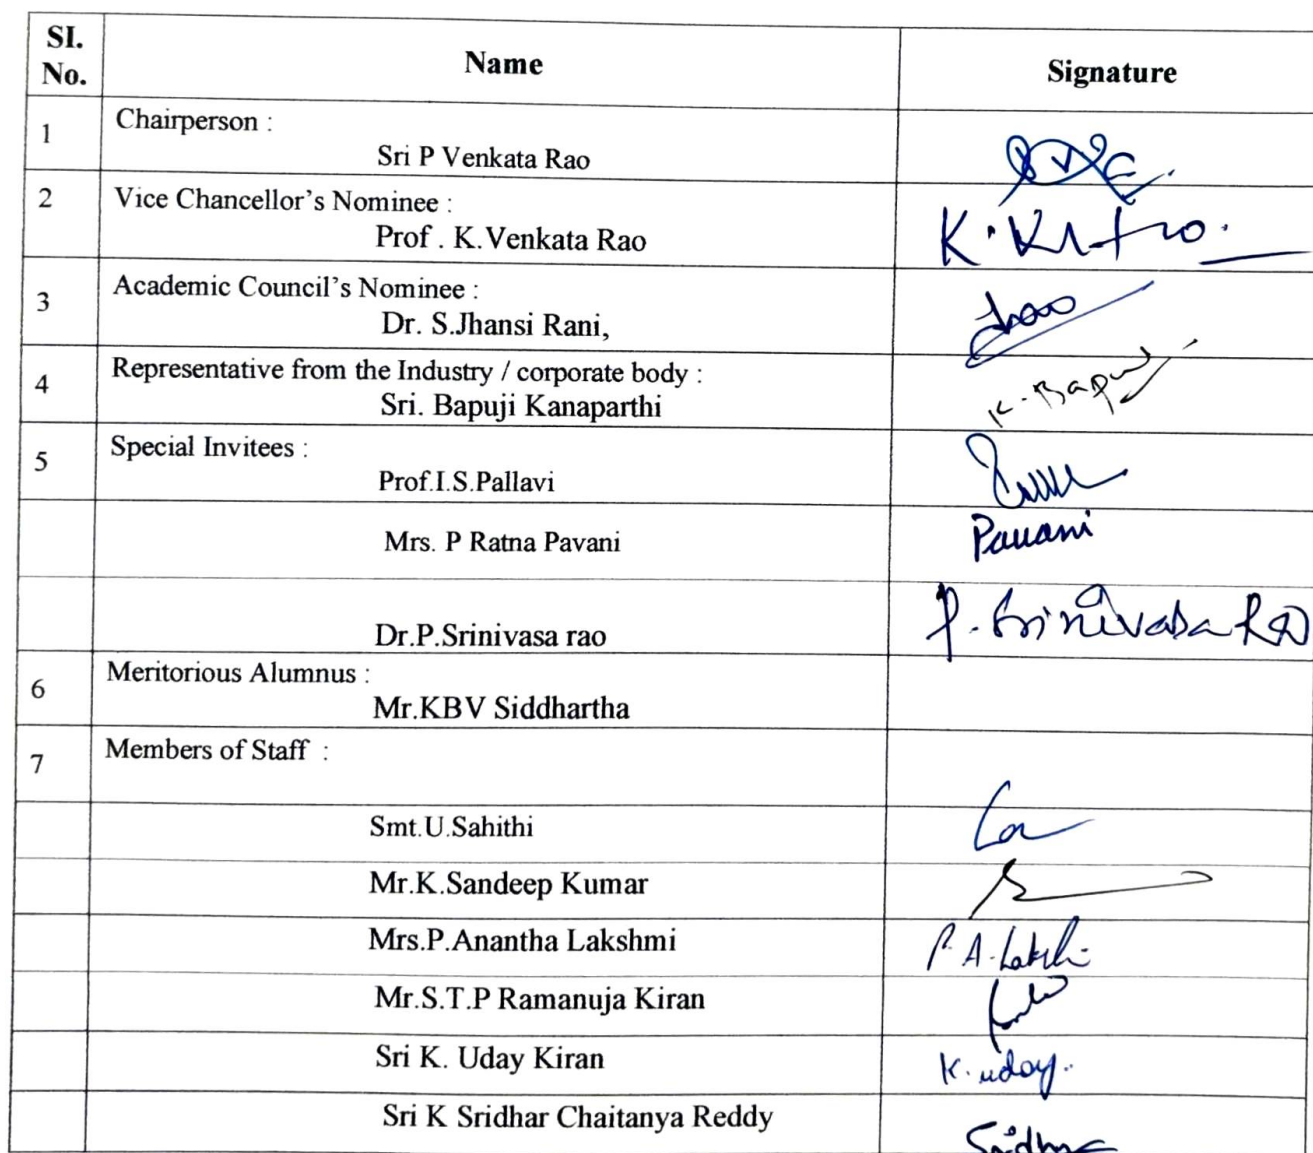 SI. No. Name Signature
1 Chairperson :
Sri P Venkata Rao
2 Vice Chancellor's Nominee :
Prof . K.Venkata Rao
3 Academic Council's Nominee :
Dr. S.Jhansi Rani,
4 Representative from the Industry / corporate body :
Sri. Bapuji Kanaparthi K. Bapuji
5 Special Invitees :
Prof.I.S.Pallavi
Mrs. P Ratna Pavani Pavani
Dr.P.Srinivasa rao P. Srinivasa Rao
6 Meritorious Alumnus :
Mr.KBV Siddhartha
7 Members of Staff :
Smt.U.Sahithi
Mr.K.Sandeep Kumar
Mrs.P.Anantha Lakshmi P. A. Lakshmi
Mr.S.T.P Ramanuja Kiran
Sri K. Uday Kiran K. uday.
Sri K Sridhar Chaitanya Reddy Sridhar